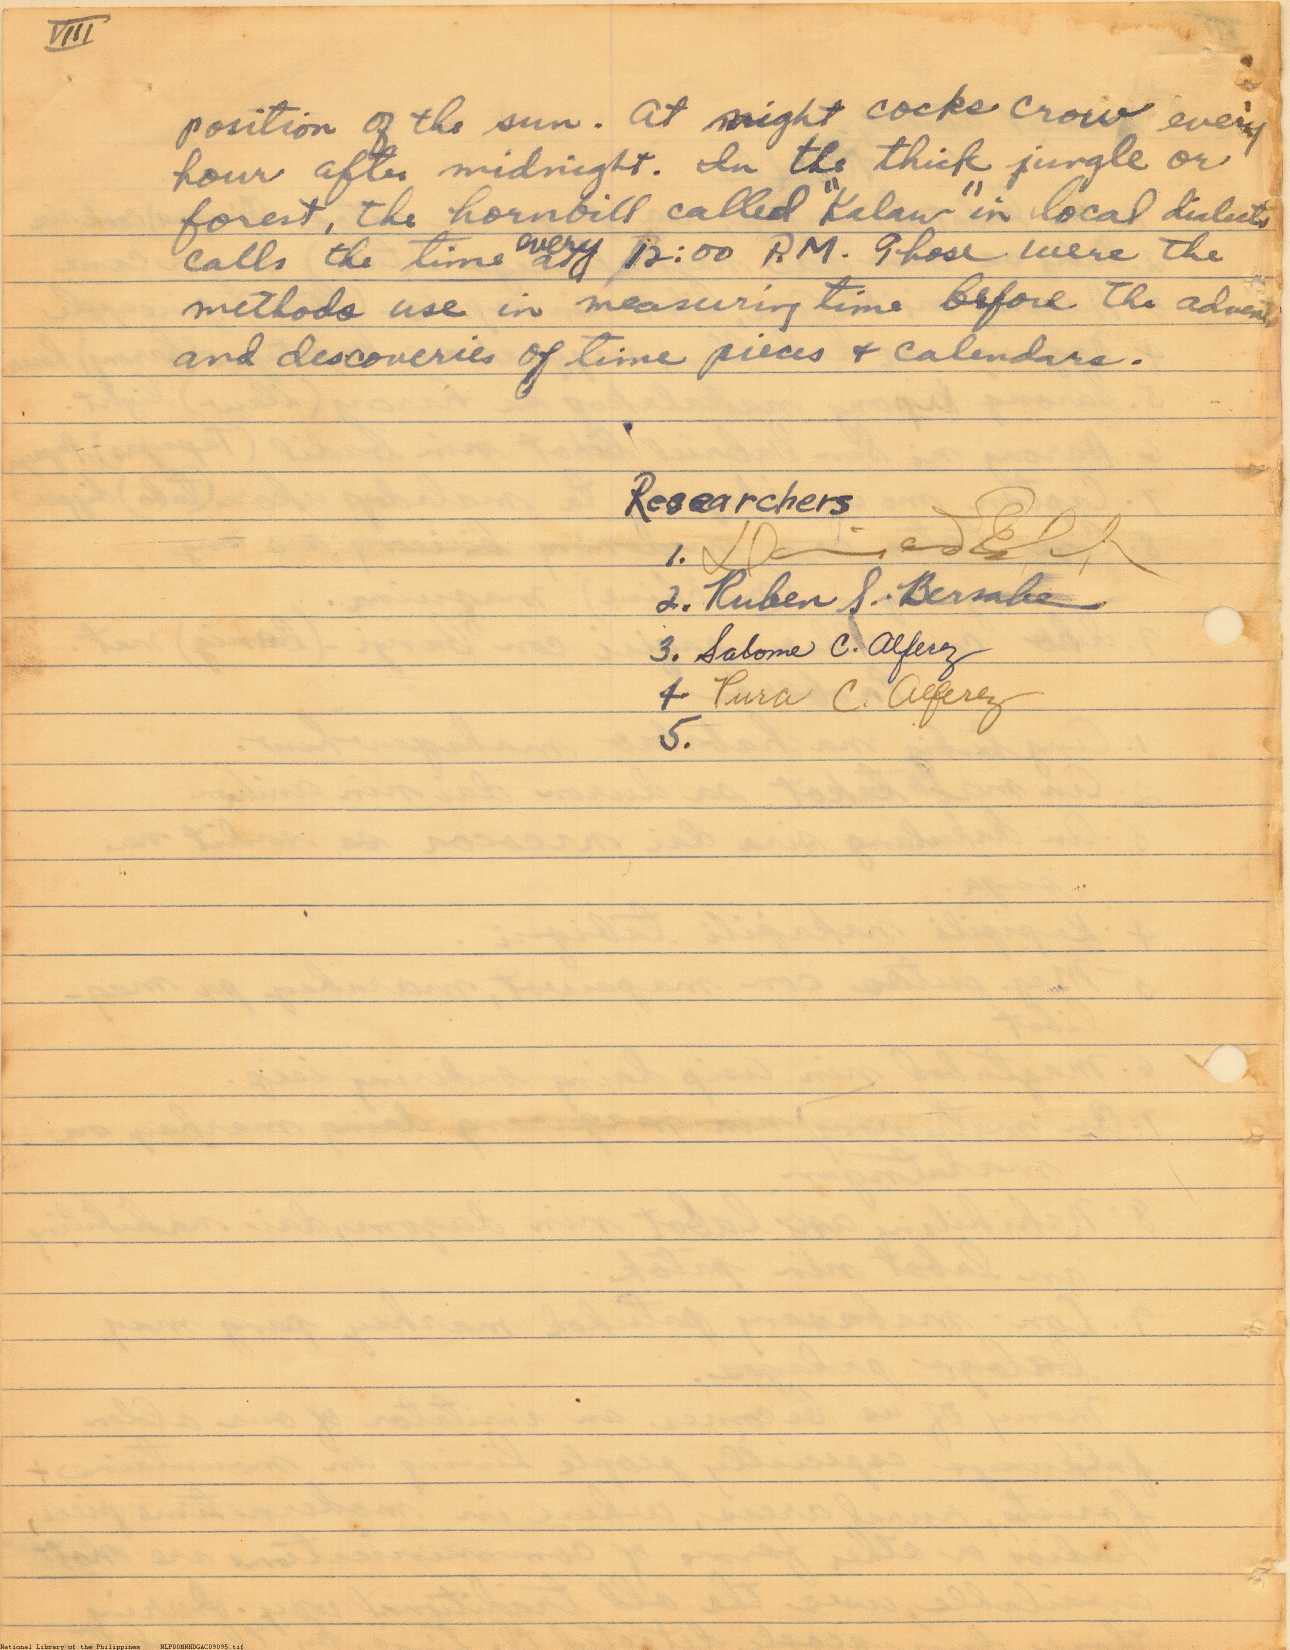 VIII
position of the sun. At night cocks crow every
hour after midnight. In the thick jungle or
forest, the hornbill called "Kalaw" in local dialects
calls the time every 12:00 P.M. Those were the
methods use in measuring time before the advent
and descoveries of time pieces + calendars.
Researchers
1.
2. Ruben S. Bersabe
3. Salome C. Alferez
4 Pura C. Alferez
5.
National Library of the Philippines NLP00NHHDGAC09095.tif